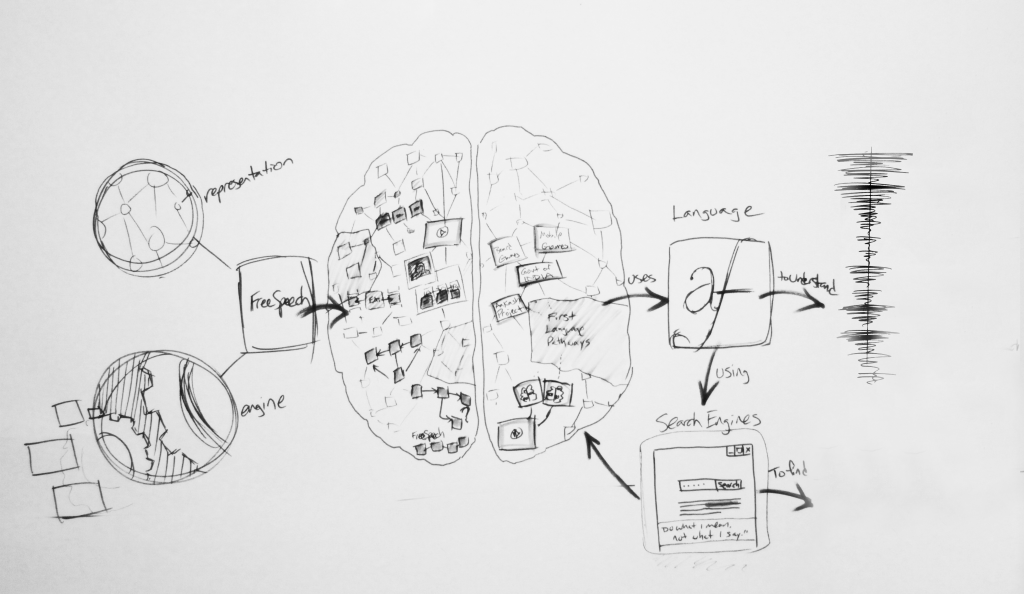 representation
FreeSpeech
engine
Eat
FreeSpeech
Smart
Games
Mobile
Games
Govt of
Project
First
Language
Pathways
uses
Language
a
to understand
using
Search Engines
Search
Do what I mean,
not what I say."
To find